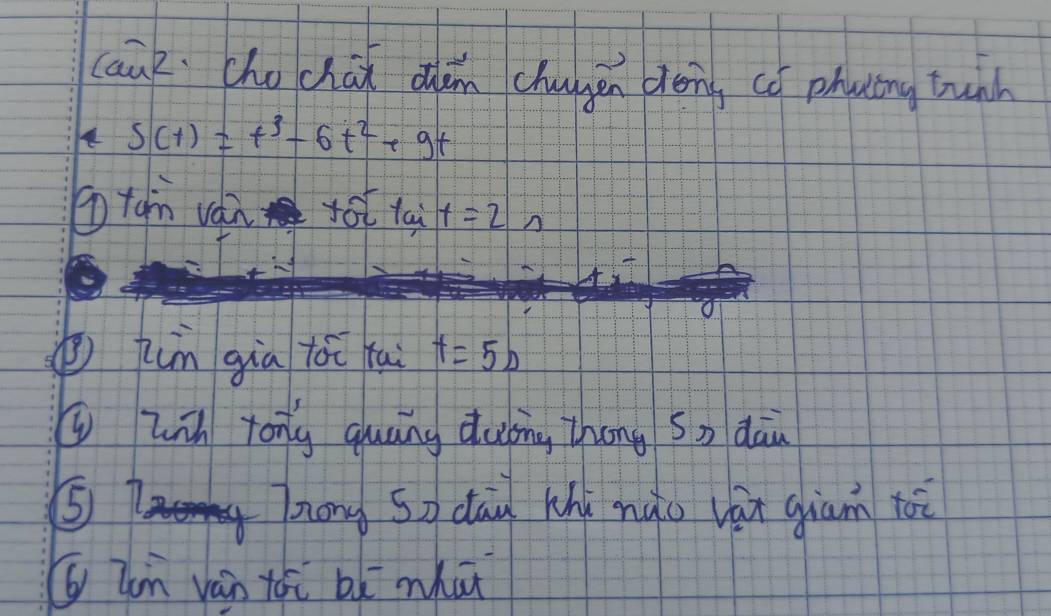 Câu 2. Cho chất điểm chuyển động có phương trình
S(t) = t³ - 6t² + 9t
① Tìm vận tốc tại t = 2 s
③ Tìm gia tốc tại t = 5s
④ Tính tổng quãng đường trong 5s đầu
⑤ Trong 5s đầu khi nào vật giảm tốc
⑥ Tìm vận tốc bé nhất